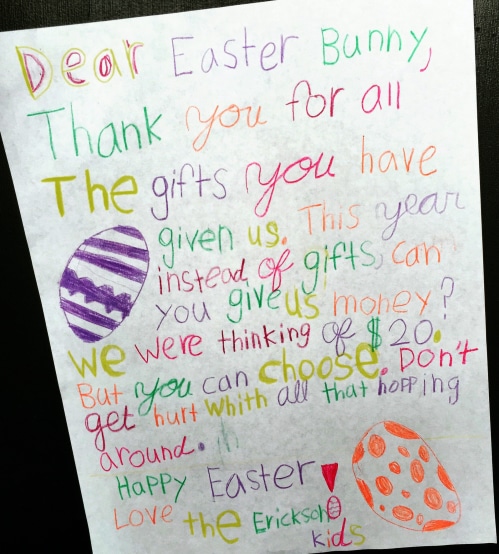 Dear Easter Bunny,
Thank you for all
The gifts you have
given us. This year
instead of gifts, can
you give us money?
We were thinking of $20.
But you can choose. Don't
get hurt whith all that hopping
around.
Happy Easter!
Love the Erickson
kids